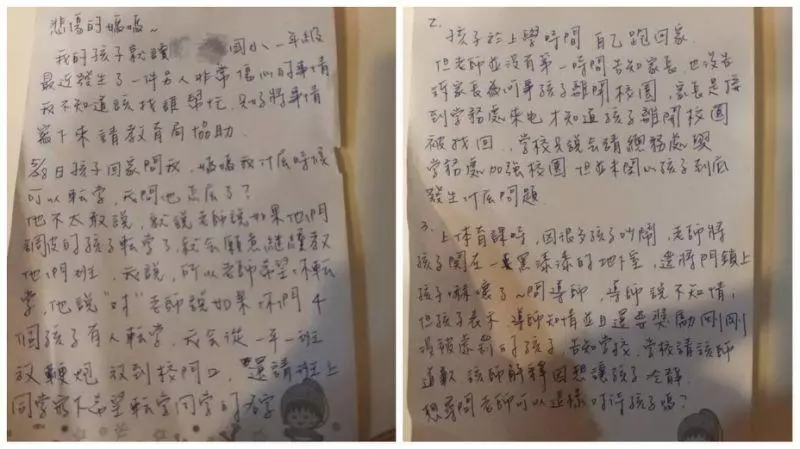 悲傷的媽媽~
我的孩子就讀 國小一年級
最近發生了一件另人非常傷心的事情
我不知道該找誰幫忙,只好將事情
寫下來請教育局協助.
5/8日孩子回家問我,媽媽我什麼時候
可以転学,我問他怎麼了?
他不太敢說,就說老師說如果他們
調皮的孩子転學了,就会願意継續教
他們班,我說,所以老師希望你転
学,他說"对"老師說如果你們4
個孩子有人転学,我会從一年一班
放鞭炮放到校門口,還請班上
同学寫下希望転学同学的名字
2.
孩子於上學時間自己跑回家.
但老師並没有第一時間告知家長,也没告
訴家長為何事孩子離開校園,家長是接
到学務處來电才知道孩子離開校園
被找回,学校只說会請總務處與
学務處加強校園 但並未関心孩子到底
發生什麼問題.
3.
上体育課時,因很多孩子吵鬧,老師將
孩子関在一黑漆漆的地下室,還將門鎖上
孩子嚇壞了~問導師,導師說不知情,
但孩子表示 導師知情並且還奖勵剛剛
没被處罰的孩子,告知学校,学校請該師
道歉,該師解釋因想讓孩子冷靜.
想要問老師可以這樣对待孩子嗎?